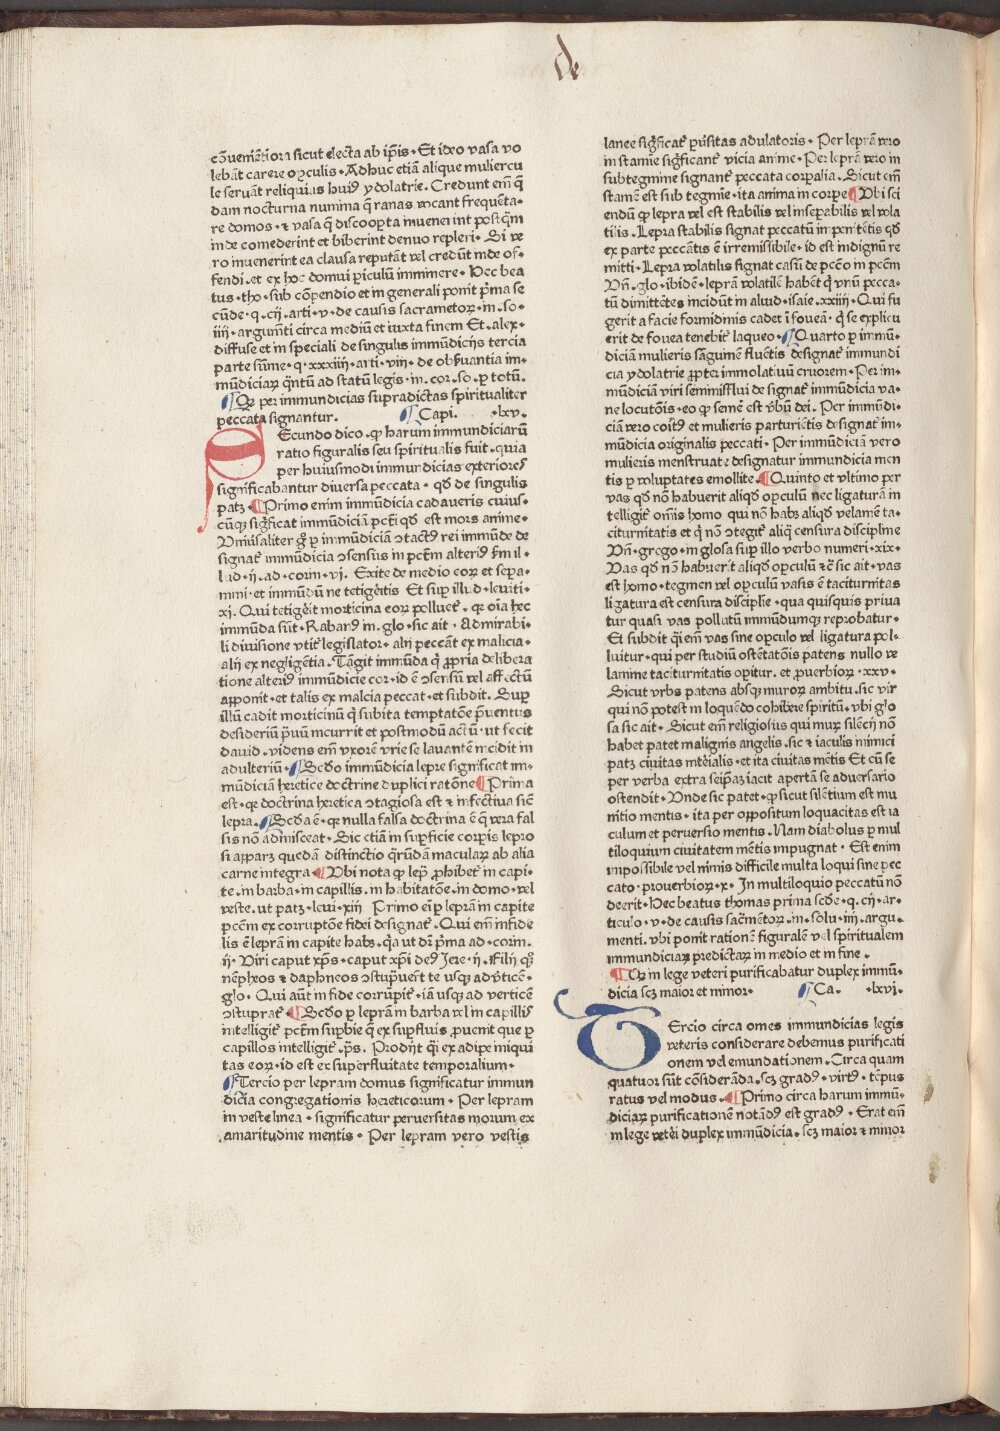 de
cōueniētiora sicut electa ab ip̄is. Et ideo vasa vo
lebāt carere oꝑculis. Adhuc etiā alique muliercu
le seruāt reliquias huiꝰ ydolatrie. Credunt em̄ q̄
dam nocturna numina q̄ ranas vocant frequēta-
re domos. ⁊ vasa q̄ discooꝑta inuenerint postq̄m
inde comederint et biberint denuo repleri. Si ve
ro inuenerint ea clausa reputāt vel credūt inde of-
fendi. et ex hoc domui ꝑiculū imminere. Hec bea
tus. tho. sub cōpendio et in generali ponit p̄ma se
cūde. q. cij. arti. v. de causis sacrametoꝝ. in. so.
iiij. argumēti circa mediū et iuxta finem Et. alex.
diffuse et in speciali de singulis immūdicijs tercia
parte sūme. q. xxxiiij. arti. viij. de obẜuantia im-
mūdiciaꝝ q̄ntū ad statū legis. in. cor. so. ꝑ totū.
¶ Qꝛ per immundicias supradictas spiritualiter
peccata signantur. ¶ Capi. .lxv.
SEcundo dico. ꝙ harum immundiciarū
ratio figuralis seu spiritualis fuit. quia
per huiusmodi immundicias exteriores
significabantur diuersa peccata. qd̄ de singulis
patꝫ. ¶ Primo enim immūdicia cadaueris cuius-
cūqꝫ sig̃ficat immūdiciā pctī qd̄ est mors anime.
Vniūsaliter g̊ ꝑ immūdiciā ↄtactꝰ rei immūde de
signat᷑ immūdicia ↄsensus in pctm̄ alteriꝰ km̄ il-
lud .ij. ad. corin. vj. Exite de medio eoꝝ et sepa-
mini. et immūdū ne tetigeritis Et suꝑ illud. leuiti.
xj. Qui tetigerit morticina eoꝝ polluet᷑. qꝛ oīa hec
immūda sūt. Rabanꝰ in. glo. sic ait. Admirabi-
li diuisione vtit᷑ legislator. alij peccāt ex malicia.
alij ex negligentia. Tāgit immūda q̇ ꝓpria delibera
tione alteriꝰ immūdicie cor. id ē ↄsensū vel affectū
apponit. et talis ex malcia peccat. et subdit. Suꝑ
illū cadit morticinū q̄ subita temptatōe p̄uentus
desideriū p̄uū incurrit et postmodū actū. ut fecit
dauid. videns em̄ vxorē vrie se lauantē incidit in
adulteriū. ¶ Scd̄o immūdicia lepre significat im-
mūdiciā heretice doctrine duplici ratōne ¶ Prima
est. qꝛ doctrina heretica ↄtagiosa est ⁊ infectiua sic̄
lepra. ¶ Scd̄a ē. qꝛ nulla falsa doctrina ē q̄ vera fal
sis nō admisceat. Sic etiā in suꝑficie corꝑis lepro
si apparꝫ quedā distinctio q̄rūdā maculaꝝ ab alia
carne integra ¶ Vbi nota ꝙ lep̄ ꝓhibet᷑ in capi-
te. in barba. in capillis. in habitatōe. in domo. vel
veste. ut patꝫ. leui. xiij Primo em̄ ꝑ leprā in capite
pccm̄ ex corruptōe fidei designat᷑. Qui em̄ infide
lis ē leprā in capite habꝫ. q̄a ut dr̄ p̄ma ad. corin.
ij. Viri caput xp̄s. caput xp̄i deꝰ Jere. ij. Filij qꝫ
nēphros ⁊ daphneos ↄstupͬuert̄ te usqꝫ ad vticē.
glo. Qui aūt in fide corrūpit᷑. iā usqꝫ ad verticē
ↄstuprat᷑. ¶ Scd̄o ꝑ leprā in barba vel in capillis
intelligit᷑ pctm̄ suꝑbie q̄ ex suꝑfluis ꝓuenit que ꝑ
capillos intelligit᷑. p̄s. Prodijt q̄i ex adipe iniqui
tas eoꝝ. id est ex superfluitate temporalium.
¶ Tercio per lepram domus significatur immun
dicia congregationis hereticorum. Per lepram
in veste linea. significatur peruersitas morum ex
amaritudine mentis. Per lepram vero vestis
lanee sig̃ficat᷑ ꝑūsitas adulatoris. Per leprā vero
in stamine sig̃ficant᷑ vicia anime. Per leprā vero in
subtegmine signant᷑ peccata corꝑalia. Sicut em̄
stamē est sub tegmīe. ita anima in corꝑe ¶ Vbi sci
endū ꝙ lepra vel est stabilis vel inseꝑabilis vel vola
tilis. Lepra stabilis signat peccatū inpenitētis qd̄
ex parte peccātis ē irremissibile. id est indignū re
mitti. Lepra volatilis signat casū de pctō in pctm̄
Vn̄. glo. ibidē. leprā volatilē habēt q̇ vnū pecca-
tū dimittētes incidūt in aliud. isaie. xxiiij. Qui fu
gerit a facie formidinis cadet ī foueā. q̇ se explicu
erit de fouea tenebit᷑ laqueo. ¶ Quarto ꝑ immū-
diciā mulieris sāguinē fluētis designat᷑ immundi
cia ydolatrie ꝓpter immolatiuū cruorem. Per im-
mūdiciā viri seminiflui designat᷑ immūdicia va-
ne locutōis. eo ꝙ semē est v̄bū dei. Per immūdi-
ciā vero coitꝰ et mulieris parturiētis designat᷑ im-
mūdicia originalis peccati. Per immūdiciā vero
mulieris menstruate designatur immundicia men
tis ꝑ voluptates emollite. ¶ Quinto et vltimo per
vas qd̄ nō habuerit aliqd̄ oꝑculū nec ligaturā in
telligit᷑ om̄is homo qui nō habꝫ aliqd̄ velamē ta-
citurnitatis et q̇ nō ↄtegit᷑ aliq̄ censura discipline
Vn̄. grego. in glosa suꝑ illo verbo numeri. xix.
Vas qd̄ nō habuerit aliqd̄ oꝑculū ⁊c̄ sic ait. vas
est homo. tegmen vel oꝑculū vasis ē taciturnitas
ligatura est censura disciplīe. qua quisquis priua
tur quasi vas pollutū immūdumqꝫ reprobatur.
Et subdit q̄i em̄ vas sine oꝑculo vel ligatura pol-
luitur. qui per studiū ostētatōis patens nullo ve
lamine taciturnitatis oꝑitur. et ꝓuerbioꝝ. xxv.
Sicut vrbs patens absqꝫ muroꝝ ambitu. sic vir
qui nō potest in loquēdo cohibere spiritū. vbi glo
sa sic ait. Sicut em̄ religiosus qui muꝝ silēcij nō
habet patet malignis angelis. sic ⁊ iaculis inimici
patꝫ ciuitas mt̄eialis. et ita ciuitas mētis Et cū se
per verba extra seip̄aꝫ iacit apertā se aduersario
ostendit. Vnde sic patet. ꝙ sicut silētium est mu
nitio mentis. ita per oppositum loquacitas est ia
culum et peruersio mentis. Nam diabolus ꝑ mul
tiloquium ciuitatem mētis impugnat. Est enim
impossibile vel nimis difficile multa loqui sine pec
cato. prouerbioꝝ. x. In multiloquio peccatū nō
deerit. Hec beatus thomas prima scd̄e. q. cij. ar-
ticulo. v. de causis sac̄mētoꝝ. in. solu. iiij. argu-
menti. vbi ponit rationē figuralē vel spiritualem
immundiciaꝝ predictaꝝ in medio et in fine.
¶ Qꝛ in lege veteri purificabatur duplex immū-
dicia scꝫ maior et minor. ¶ Ca. .lxvi.
TErcio circa omēs immundicias legis
veteris considerare debemus purificati
onem vel emundationem. Circa quam
quatuor sūt cōsiderāda. scꝫ gradꝰ. virtꝰ. tēpus
ratus vel modus. ¶ Primo circa harum immū-
diciaꝝ purificationē notādꝰ est gradꝰ. Erat em̄
in lege vet̄ei duplex immūdicia. scꝫ maior ⁊ minor